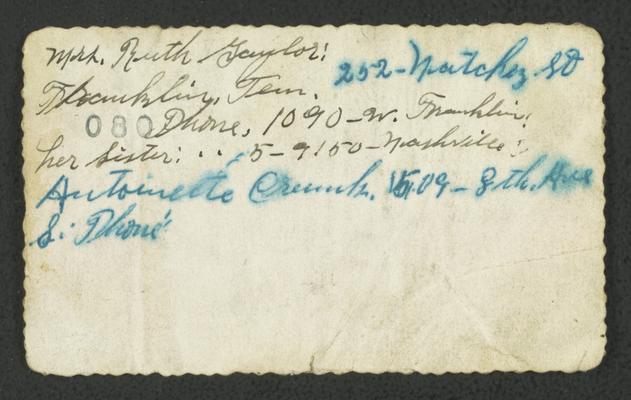 Mrs. Ruth Gaylor: 252-Natchez St
Franklin, Tenn.
080 Phone, 1090-W. Franklin.
her sister: .. 5-9150-Nashville:
Antoinette Crumb. 1509-8th. Ave
S: Phone